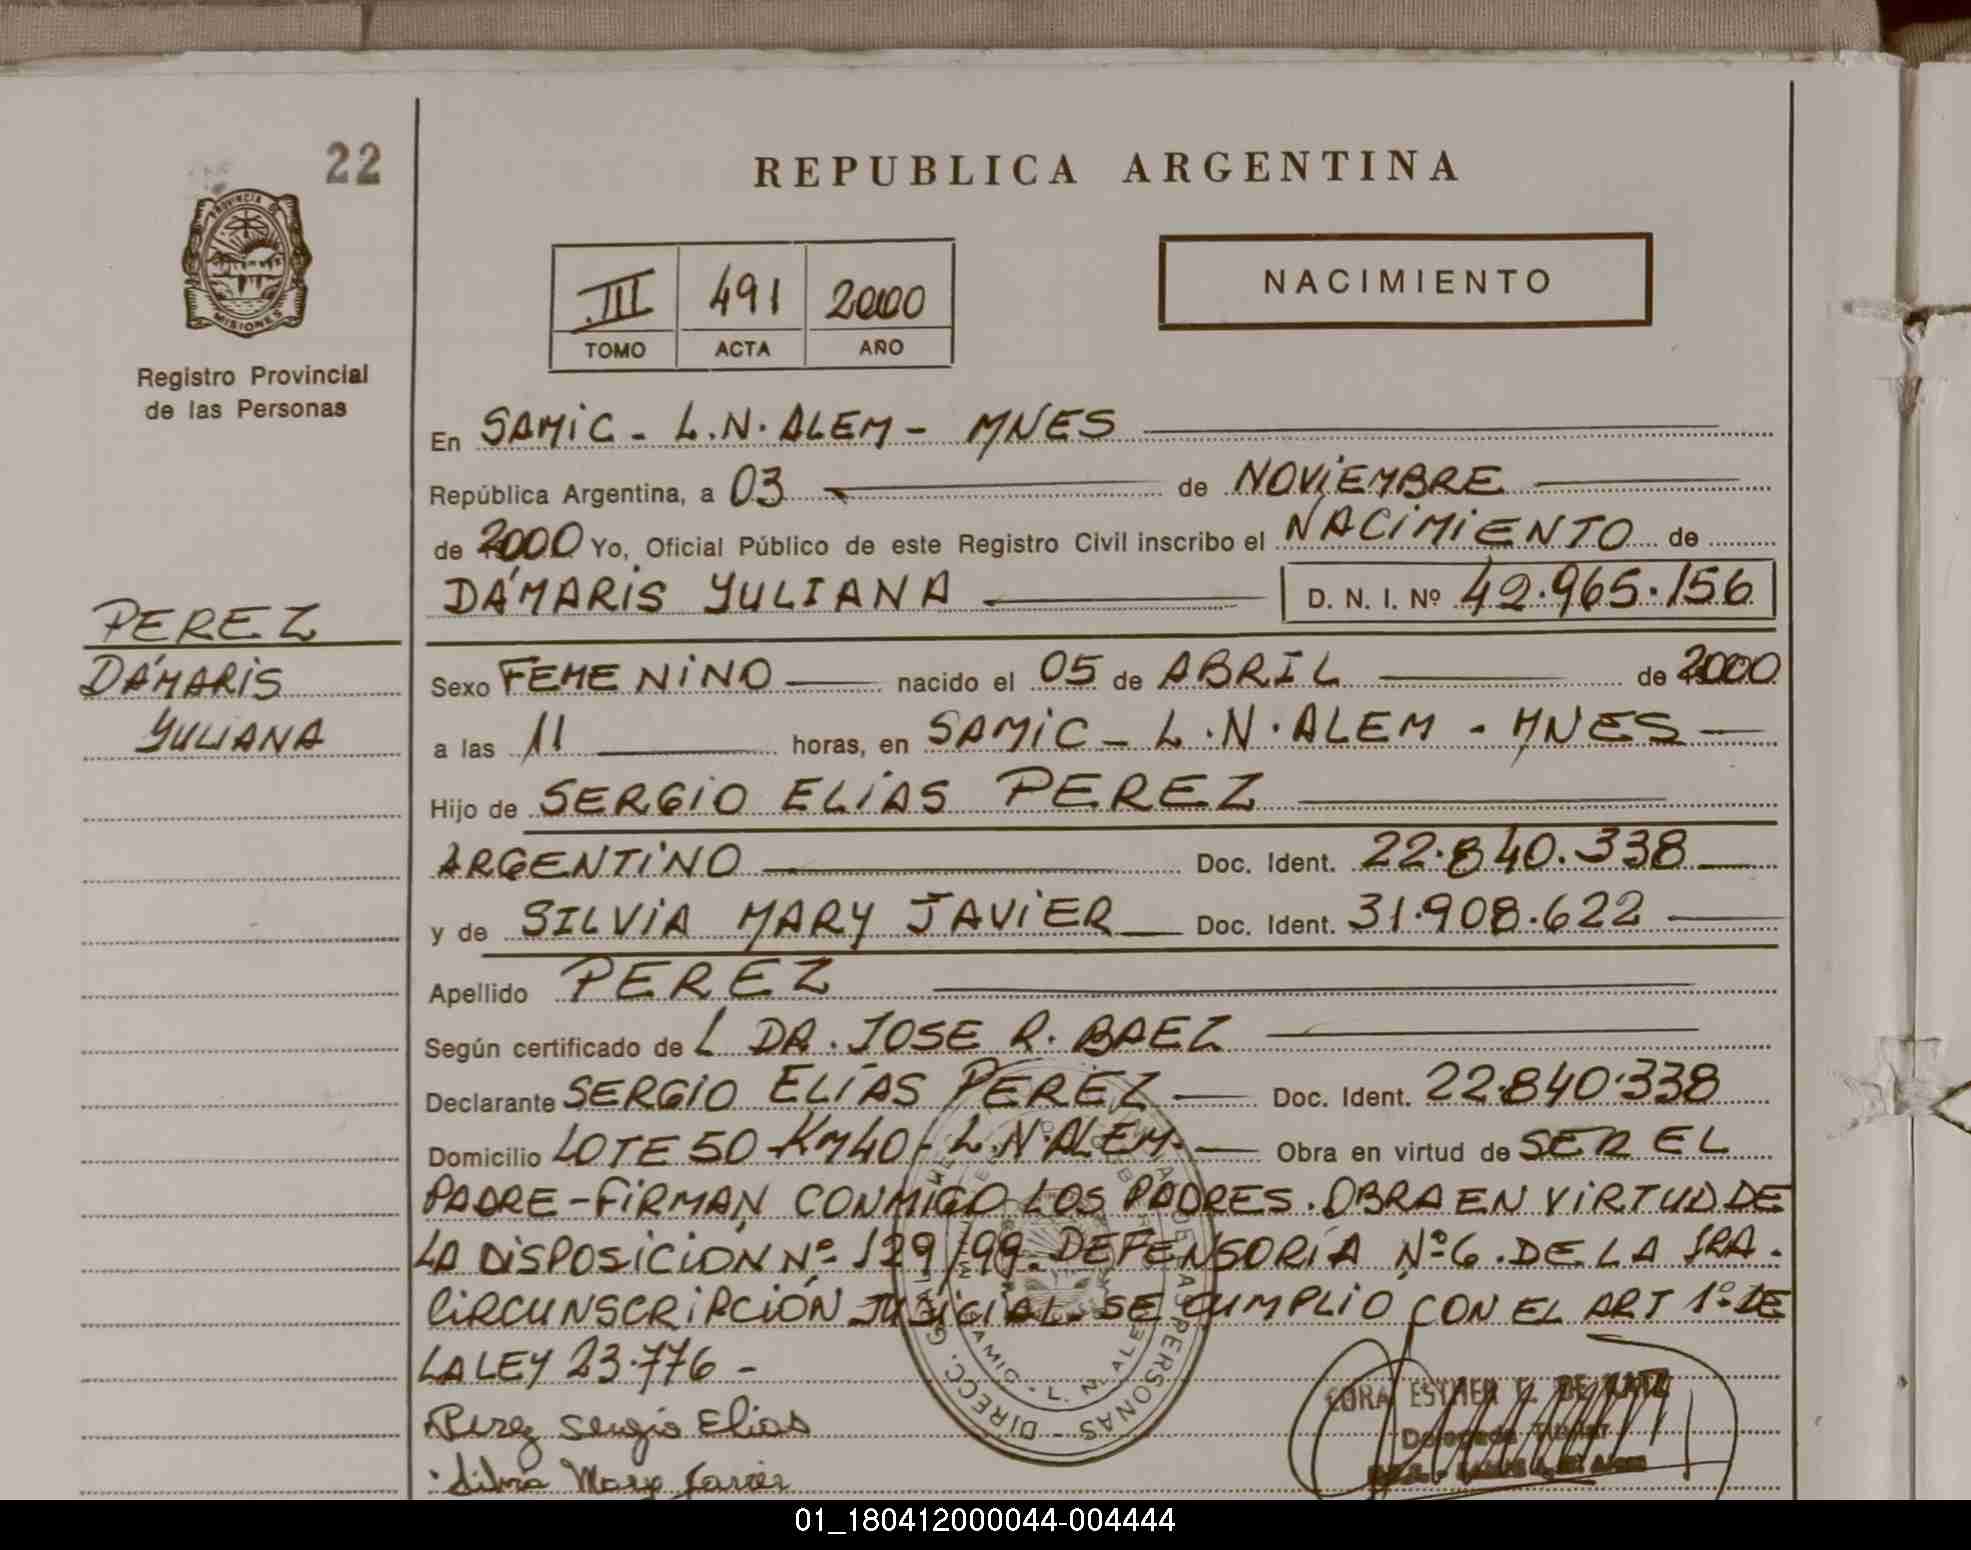 22
REPUBLICA ARGENTINA
PROVINCIA DE
MISIONES
Registro Provincial
de las Personas
III 491 2000
TOMO ACTA AÑO
NACIMIENTO
En SAMiC - L.N. ALEM - MNES
República Argentina, a 03 de NOViEMBRE
de 2000 Yo, Oficial Público de este Registro Civil inscribo el NACiMiENTO de
DÁMARiS YULIANA D. N. I. Nº 42.965.156
PEREZ
DÁMARiS
YULIANA
Sexo FEMENiNO nacido el 05 de ABRIL de 2000
a las 11 horas, en SAMiC - L.N. ALEM - MNES
Hijo de SERGiO ELÍAS PEREZ
ARGENTiNO Doc. Ident. 22.840.338
y de SILViA MARY JAViER Doc. Ident. 31.908.622
Apellido PEREZ
Según certificado de L DR. JOSE R. BAEZ
Declarante SERGIO ELÍAS PEREZ Doc. Ident. 22.840.338
Domicilio LOTE 50 - KM 40 - L.N. ALEM. Obra en virtud de SER EL
PADRE - FiRMAN CONMIGO LOS PADRES. OBRA EN ViRTUD DE
LA DiSPOSiCiÓN Nº 129/99. DEFENSORÍA Nº 6. DE LA 1RA.
CiRCUNSCRiPCiÓN JUDiCiAL. SE CUMPLIÓ CON EL ART 1º DE
LA LEY 23.776 -
Perez Sergio Elias
Silvia Mary Javier
DIRECC. GRAL. DE LAS PERSONAS
L. N. ALEM
CORA ESTHER
01_180412000044-004444